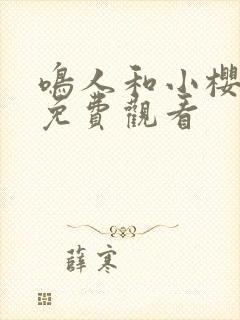 鳴人和小櫻
免費觀看
薛寒